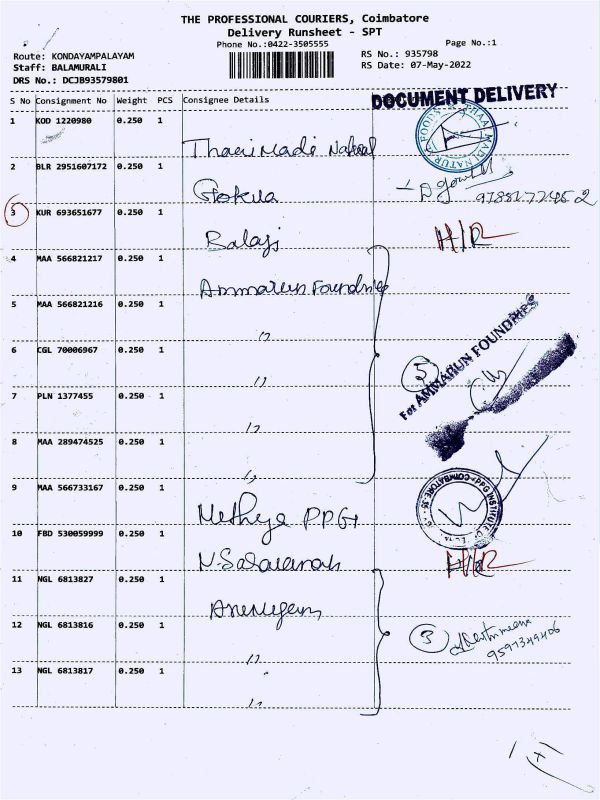 THE PROFESSIONAL COURIERS, Coimbatore
Delivery Runsheet - SPT
Phone No.:0422-3505555
Page No.:1
Route: KONDAYAMPALAYAM
Staff: BALAMURALI
DRS No.: DCJB93579801
RS No.: 935798
RS Date: 07-May-2022
S No Consignment No Weight PCS Consignee Details
DOCUMENT DELIVERY
1 KOD 1220980 0.250 1
2 BLR 2951607172 0.250 1 Gokula
3 KUR 693651677 0.250 1 Balaji H/R
4 MAA 566821217 0.250 1 Ammarun Foundries
5 MAA 566821216 0.250 1 "
6 CGL 70006967 0.250 1 "
7 PLN 1377455 0.250 1 "
8 MAA 289474525 0.250 1 "
5
For AMMARUN FOUNDRIES
9 MAA 566733167 0.250 1 PPG
10 FBD 530059999 0.250 1 H/R
11 NGL 6813827 0.250 1
12 NGL 6813816 0.250 1 "
13 NGL 6813817 0.250 1 "
3